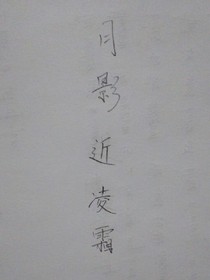 月影近凌霜